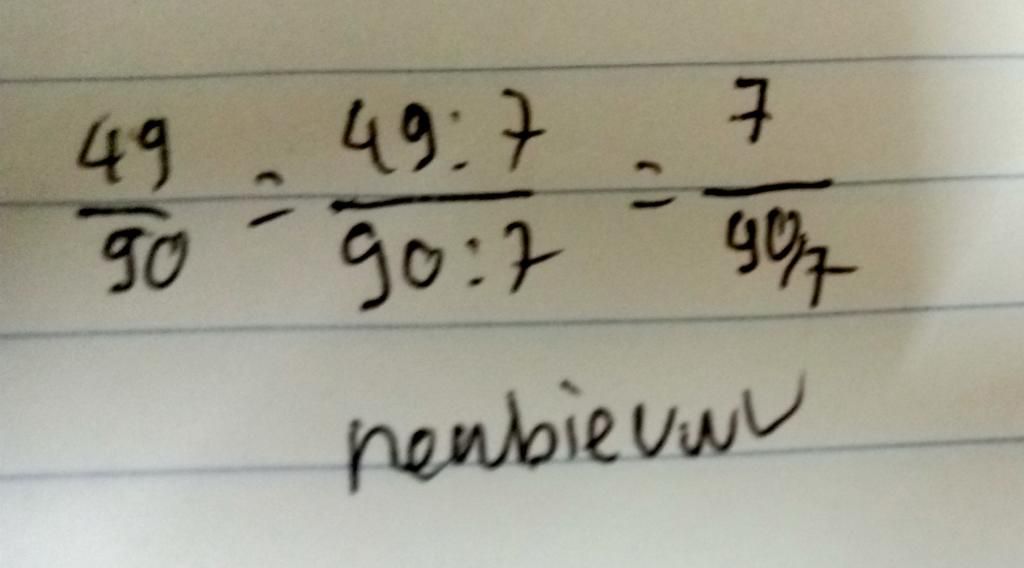 49/90 = 49:7/90:7 = 7/90/7
newbievuv